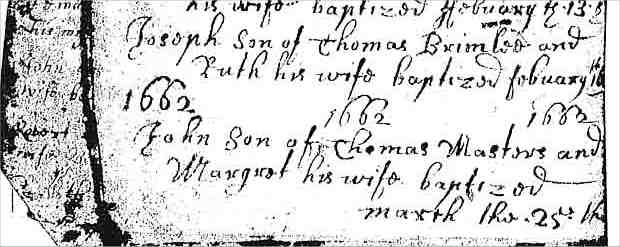 his wife baptized Febuary th 13
Joseph Son of Thomas Brimlee and
Ruth his wife baptized febuary th
1662 1662 1662
John Son of Thomas Masters and
Margret his wife baptized
march the 25th